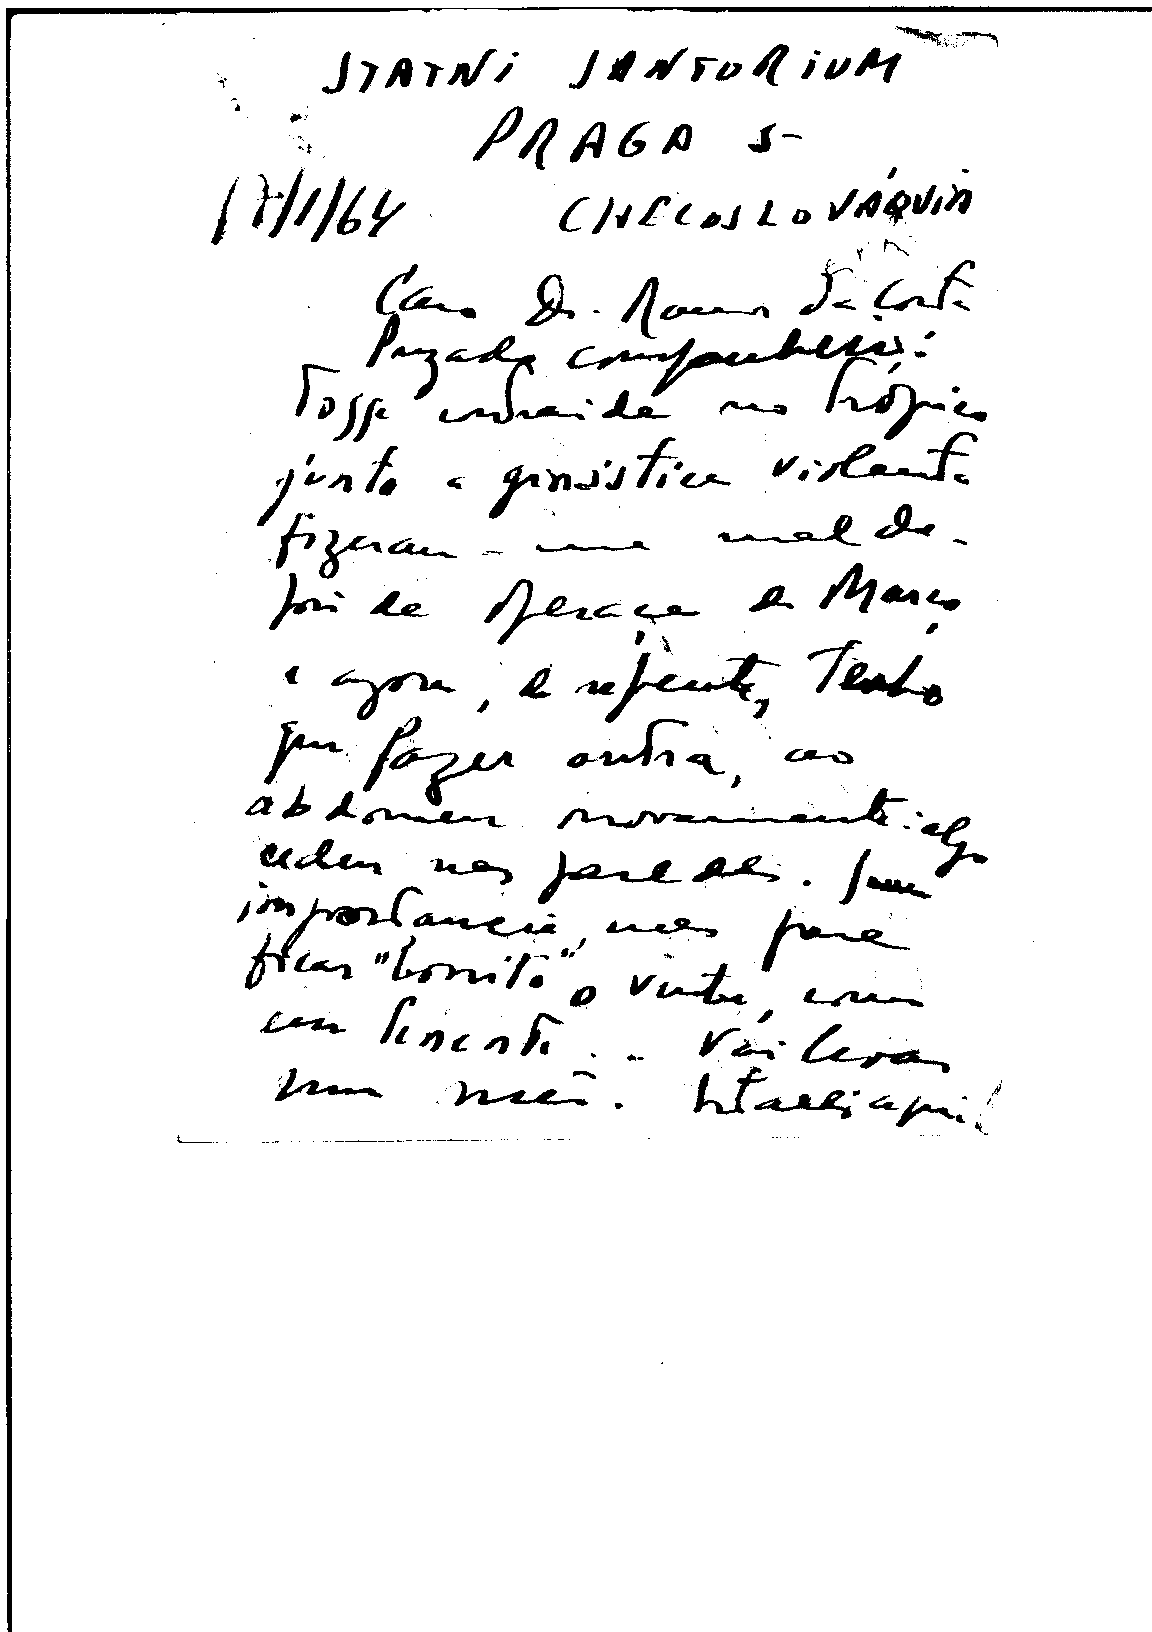 STATNI SANTORIUM
PRAGA 5-
17/1/64 CHECOSLOVÁQUIA
Caro Dr. Ramos da Costa
Prezado companheiro:
Tosse contraida no trópico
junto a ginástica violenta
fizeram-me mal de-
pois da operação de Março
e agora, de repente, tenho
que fazer outra, ao
abdomen novamente: algo
cedeu nas paredes. Sem
importancia, mas para
ficar "bonito" o ventre, como
um tenente... Vai levar
um mês. Estarei aqui